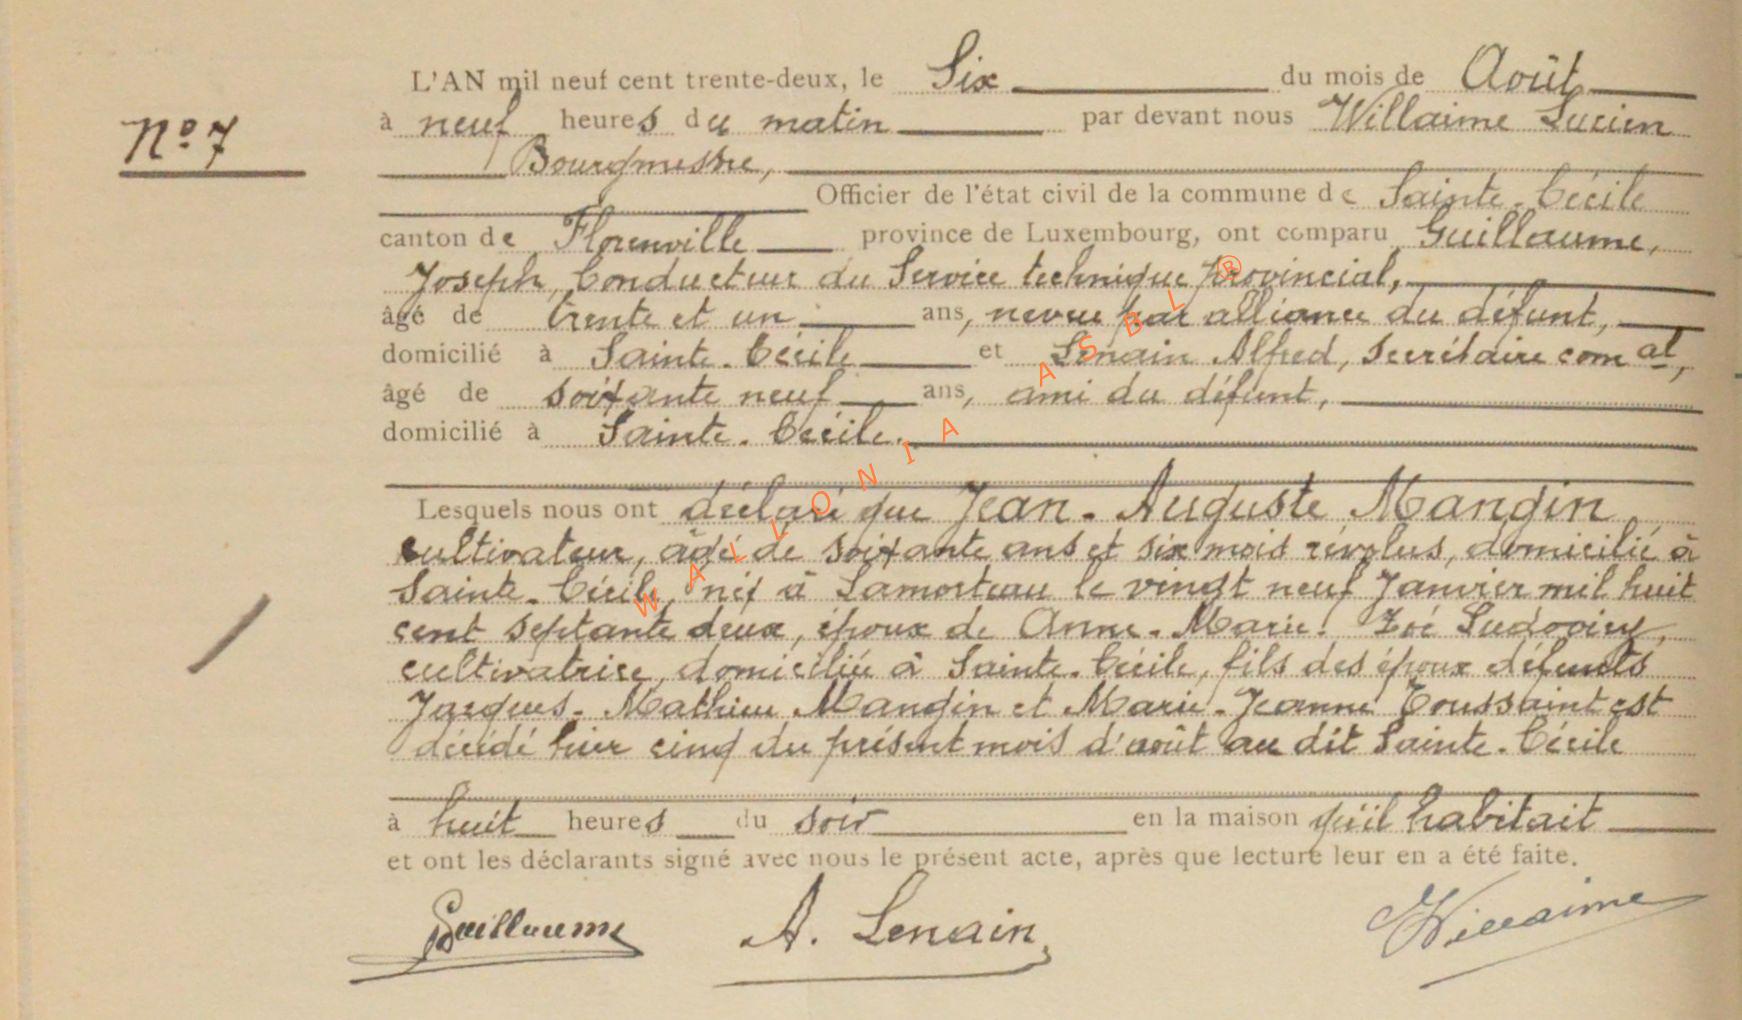 L'AN mil neuf cent trente-deux, le Six du mois de Août
Nº 7
à neuf heures du matin par devant nous Willaime Lucien
Bourgmestre,
Officier de l'état civil de la commune de Sainte-Cécile
canton de Florenville province de Luxembourg, ont comparu Guillaume,
Joseph, Conducteur du Service technique provincial,
âgé de trente et un ans, neveu par alliance du défunt,
domicilié à Sainte-Cécile et Lenain Alfred, secrétaire comal,
âgé de soixante neuf ans, ami du défunt,
domicilié à Sainte-Cécile.
Lesquels nous ont déclaré que Jean-Auguste Mangin
cultivateur, âgé de soixante ans et six mois révolus, domicilié à
Sainte-Cécile, né à Lamorteau le vingt neuf Janvier mil huit
cent septante deux, époux de Anne-Marie-Zoé Ludovicy,
cultivatrice, domiciliée à Sainte-Cécile, fils des époux défunts
Jacques-Mathieu Mangin et Marie-Jeanne Toussaint est
décédé hier cinq du présent mois d'août au dit Sainte-Cécile
à huit heures du soir en la maison qu'il habitait
et ont les déclarants signé avec nous le présent acte, après que lecture leur en a été faite.
Guillaume A. Lenain Willaime
WALLONIA ASBL ®